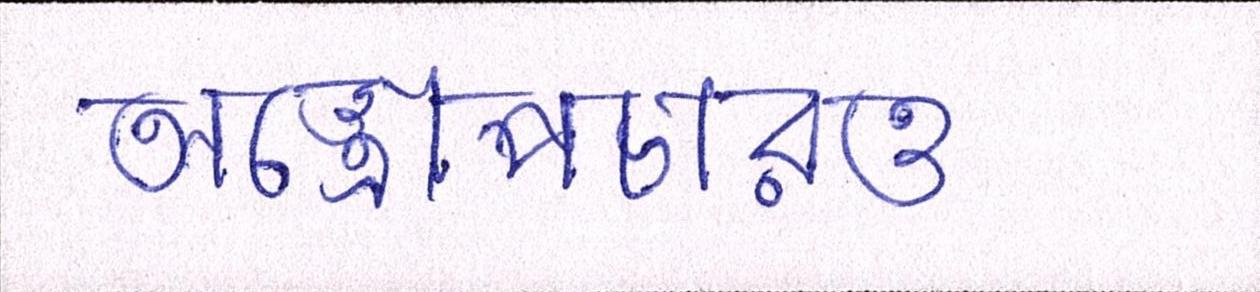 অস্ত্রোপচারও